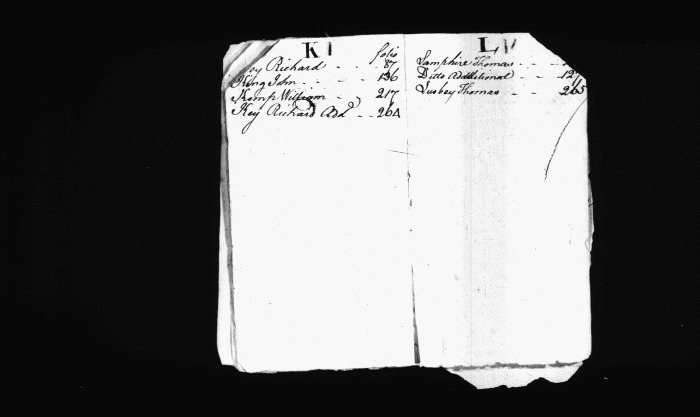 K
folio
Richard - - 87
King John - - - 136
Kemp William - 217
Key Richard Add.l - - 264
L
Lamphire Thomas - -
Ditto Additional - - 127
Lusbey Thomas - - 265